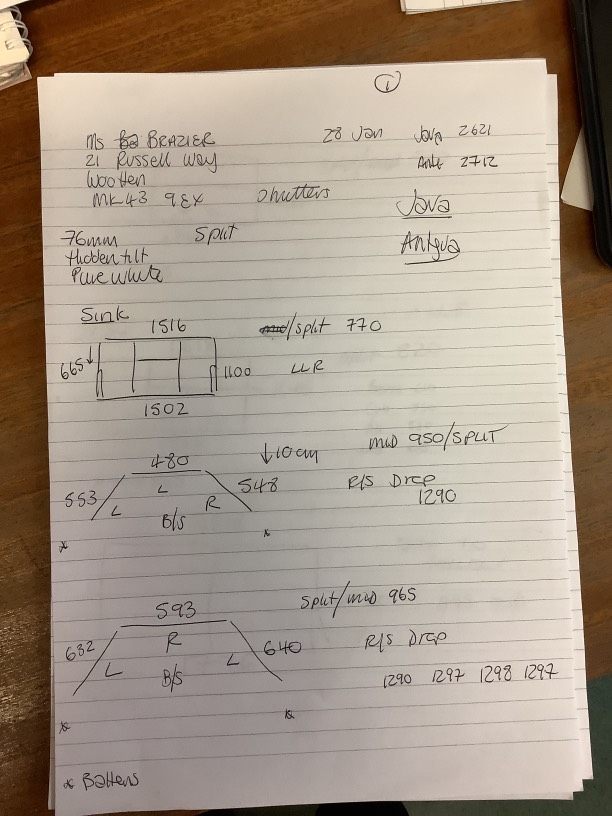 1
Ms BRAZIER 28 Jan Java 2621
21 Russell Way Ant 2712
Wootten
MK43 9EX Shutters Java
76mm Split Antigua
Hidden tilt
Pure white
Sink
1516 mid/split 770
665 1100 LLR
1502
480 ↓10cm mid 950/SPLIT
553 L L R 548 R/S Drop
B/S 1290
* *
593 Split/mid 965
632 R 640 R/S Drop
L B/S L
1290 1297 1298 1297
* *
* Battens